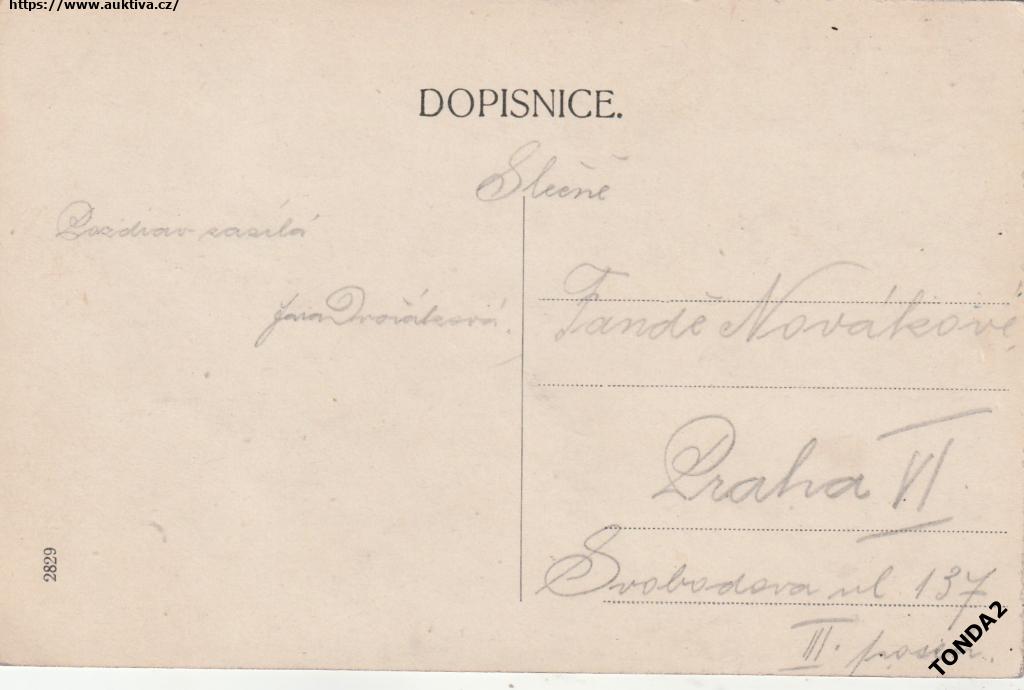 https://www.auktiva.cz/
DOPISNICE.
Slečně
Pozdrav zasílá
Jara Dvořáková.
Fandě Novákové
Praha VI
Svobodova ul 137
III.
2829
TONDA2